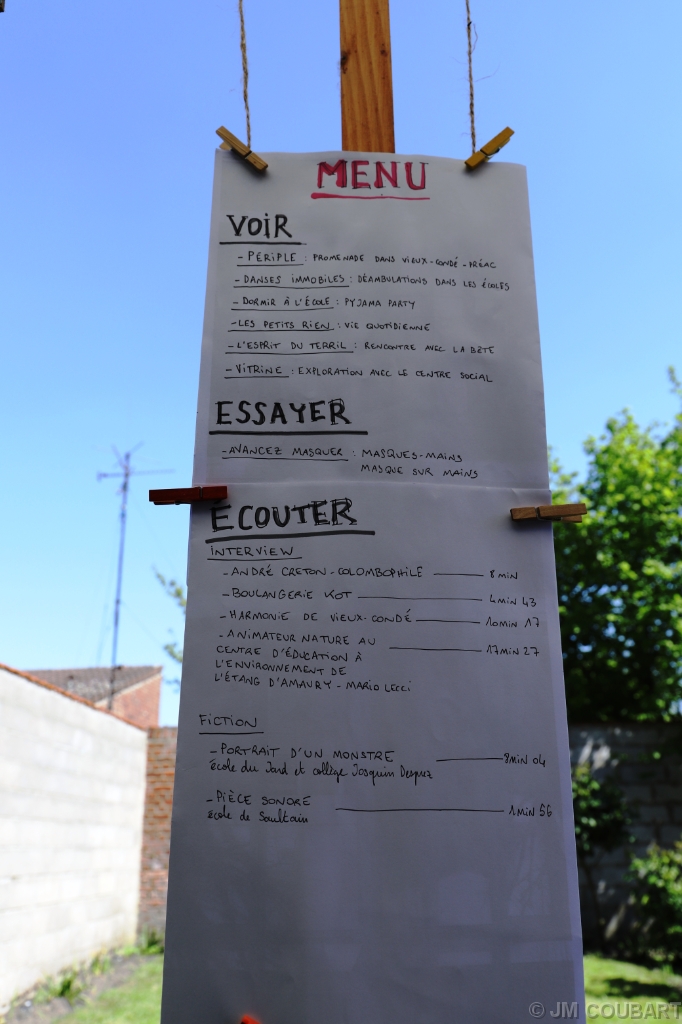 MENU
VOIR
- PÉRIPLE : PROMENADE DANS VIEUX-CONDÉ - PRÉAC
- DANSES IMMOBILES : DÉAMBULATIONS DANS LES ÉCOLES
- DORMIR À L'ÉCOLE : PYJAMA PARTY
- LES PETITS RIEN : VIE QUOTIDIENNE
- L'ESPRIT DU TERRIL : RENCONTRE AVEC LA BÊTE
- VITRINE : EXPLORATION AVEC LE CENTRE SOCIAL
ESSAYER
- AVANCEZ MASQUER : MASQUES-MAINS
MASQUE SUR MAINS
ECOUTER
INTERVIEW
- ANDRÉ CRETON - COLOMBOPHILE 8 MIN
- BOULANGERIE KOT 4 MIN 43
- HARMONIE DE VIEUX-CONDÉ 10 MIN 17
- ANIMATEUR NATURE AU 17 MIN 27
CENTRE D'ÉDUCATION À
L'ENVIRONNEMENT DE
L'ÉTANG D'AMAURY - MARIO LECCI
FICTION
- PORTRAIT D'UN MONSTRE 8 MIN 04
école du Jard et collège Josquin Desprez
- PIÈCE SONORE 1 MIN 56
école de Saultain
© JM COUBART